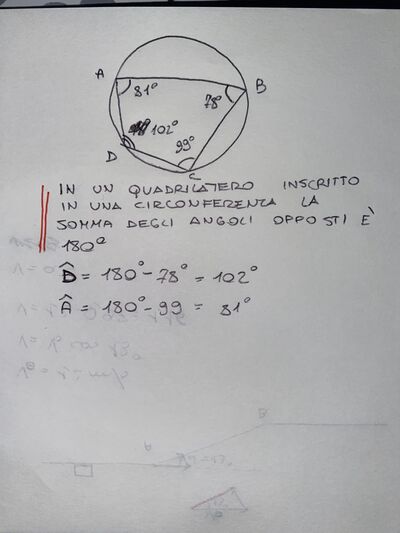 A
B
81°
78°
102°
99°
D
C
IN UN QUADRILATERO INSCRITTO
IN UNA CIRCONFERENZA LA
SOMMA DEGLI ANGOLI OPPOSTI È
180°
D̂ = 180° - 78° = 102°
Â = 180° - 99 = 81°